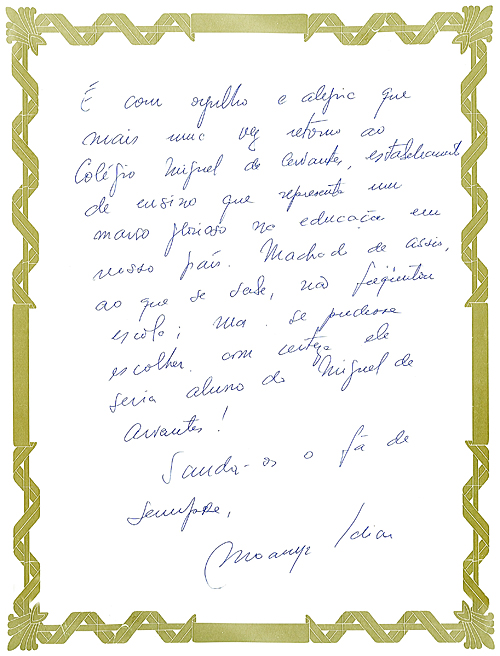 É com orgulho e alegria que
mais uma vez retorno ao
Colégio Miguel de Cervantes, estabelecimento
de ensino que representa um
marco glorioso na educação em
nosso país. Machado de Assis,
ao que se sabe, não freqüentou
escola; mas se pudesse
escolher com certeza ele
seria aluno do Miguel de
Cervantes!
Sauda-os o fã de
sempre,
Moacyr Scliar